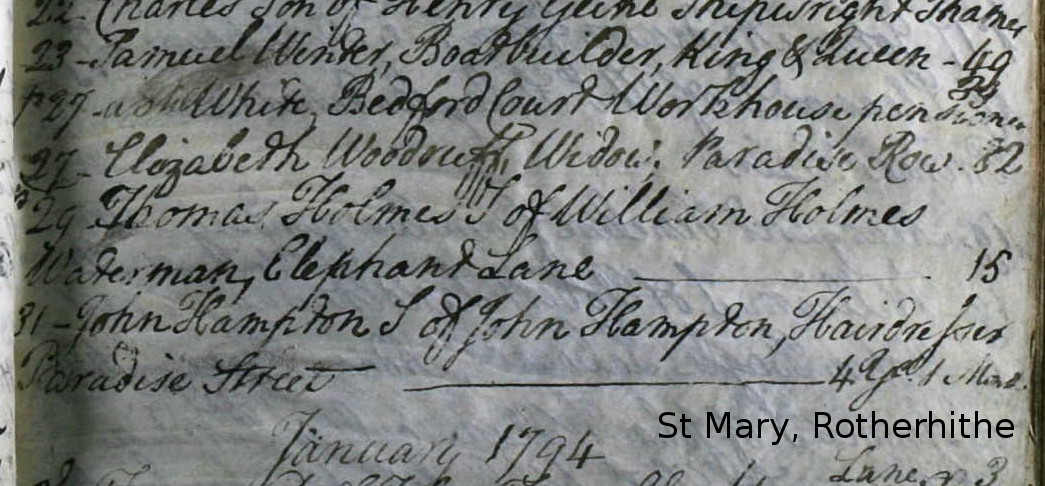 22 - Charles Son of Henry Shipwright Thames
23 - Samuel Winter, Boatbuilder, King & Queen - 49
27 - White, Bedford Court Workhouse pensioner
27 - Elizabeth Woodruff, Widow, Paradise Row. 82
29 Thomas Holmes S of William Holmes
Waterman, Elephant Lane 15
31 - John Hampton S of John Hampton, Hairdresser
Paradise Street 4 Ys. 1 Mon
January 1794
Lane 3
St Mary, Rotherhithe